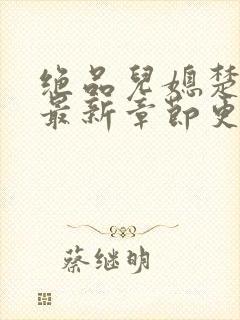 绝品兒媳楚
最新章节更
蔡继明